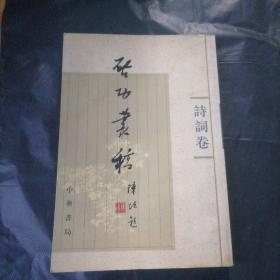 詩詞卷
啓功叢稿
陳垣題
中華書局